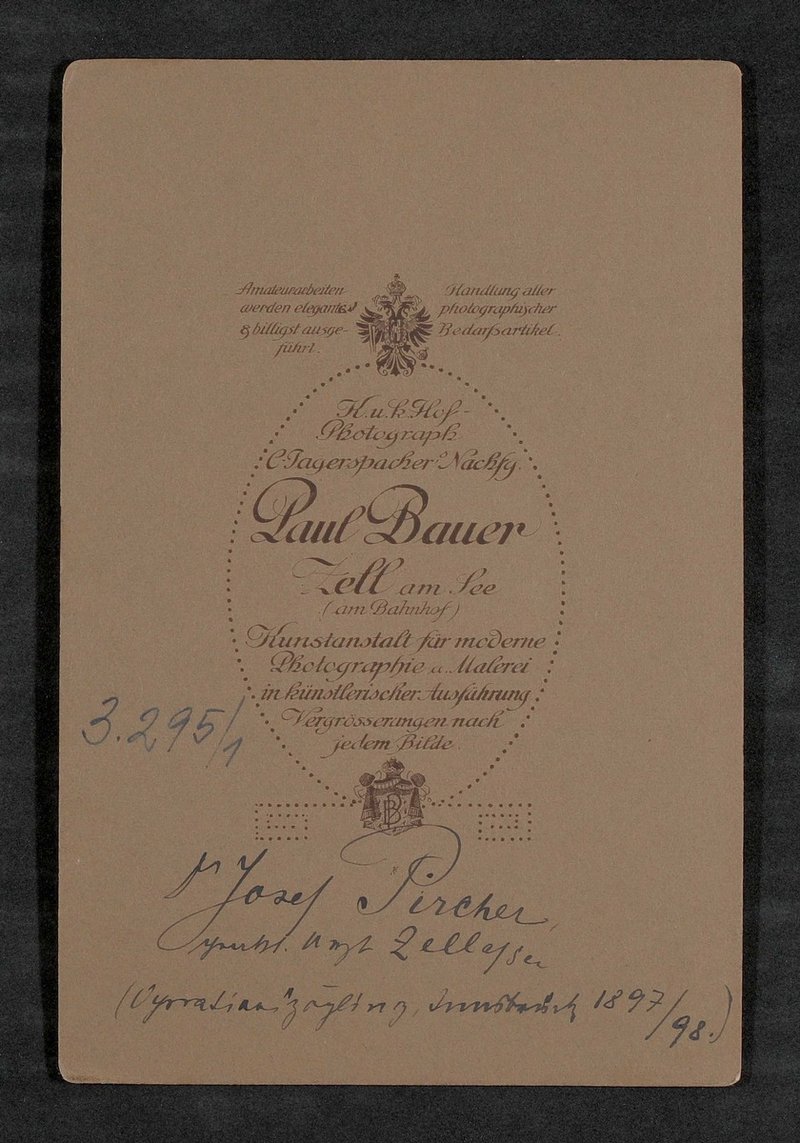 Amateurarbeiten
werden elegantest
& billigst ausge-
führt.
Handlung aller
photographischer
Bedarfsartikel.
K.u.k. Hof-
Photograph
C. Jagerspacher's Nachfg.
Paul Bauer
Zell am See
(am Bahnhof)
Kunstanstalt für moderne
Photographie u. Malerei
in künstlerischer Ausführung
Vergrösserungen nach
jedem Bilde.
3.295/1
PB
Dr Josef Pircher,
prakt. Arzt Zell a/See
(Operationszögling, Innsbruck 1897/98.)